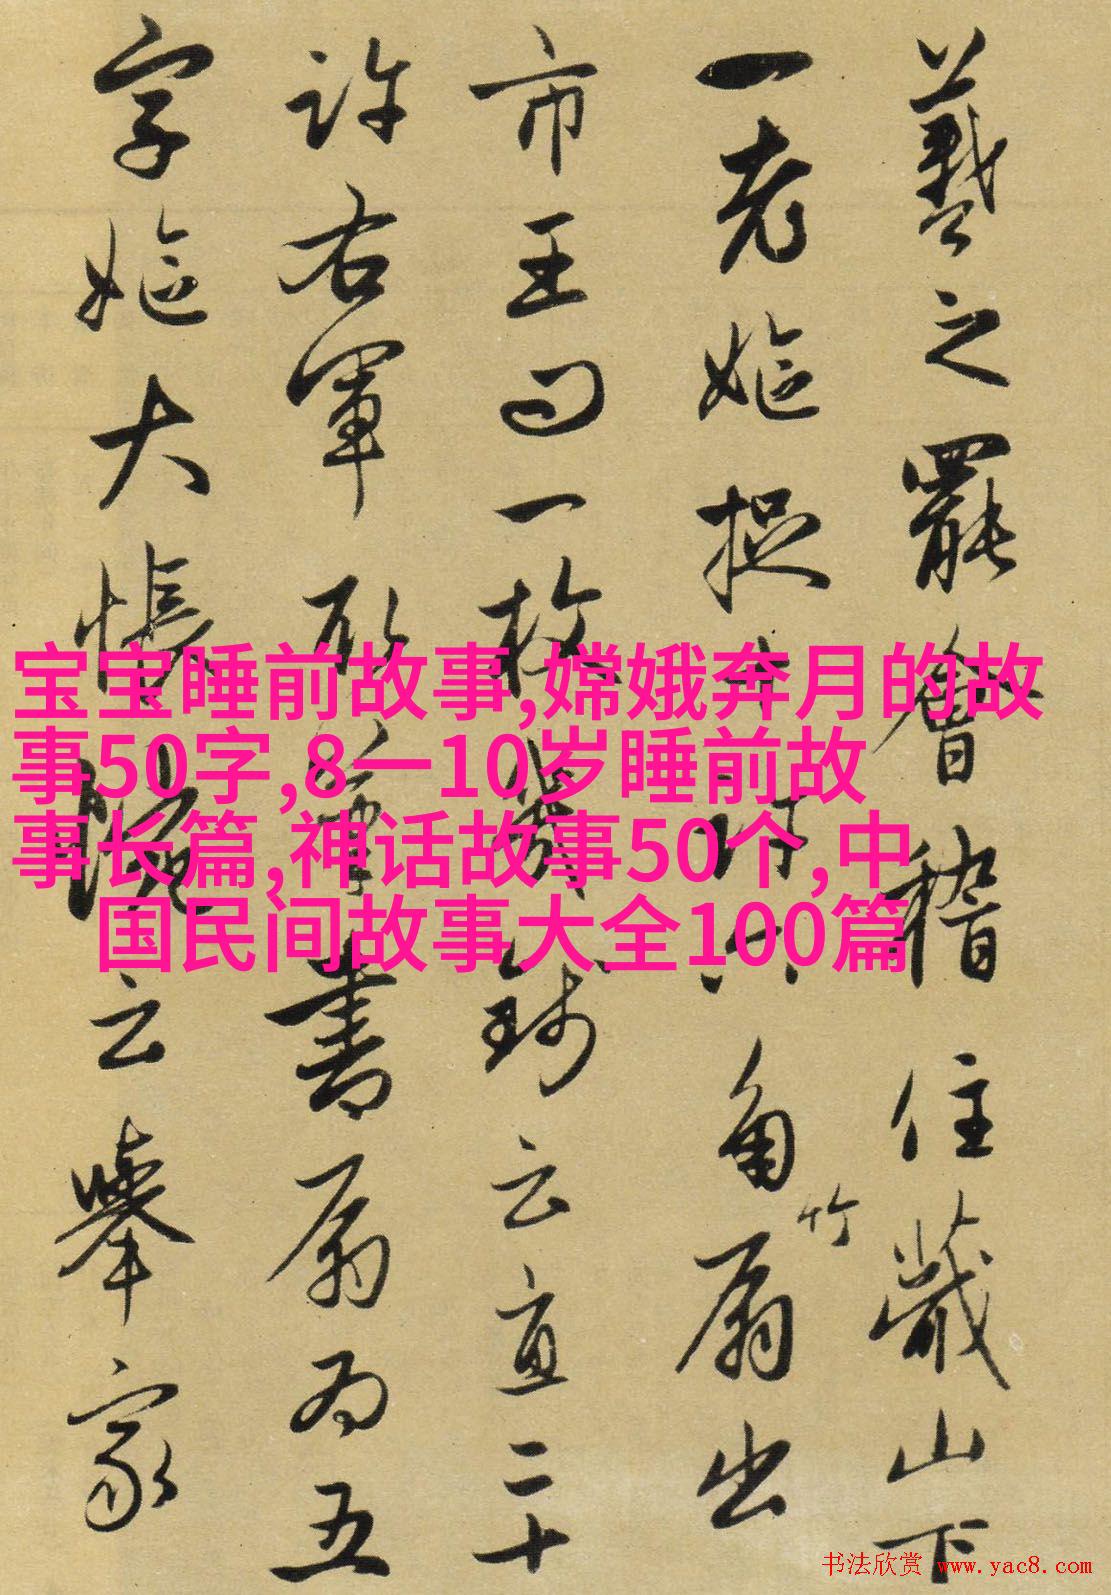 羲之罷會稽住蕺山下
一老嫗捉
六角竹扇出
市王曰一枚幾錢云直二十
許右軍取筆書扇扇為五
字嫗大悵惋云舉家
宝宝睡前故事,嫦娥奔月的故
事50字,8一10岁睡前故
事长篇,神话故事50个,中
国民间故事大全100篇
书法欣赏 www.yac8.com